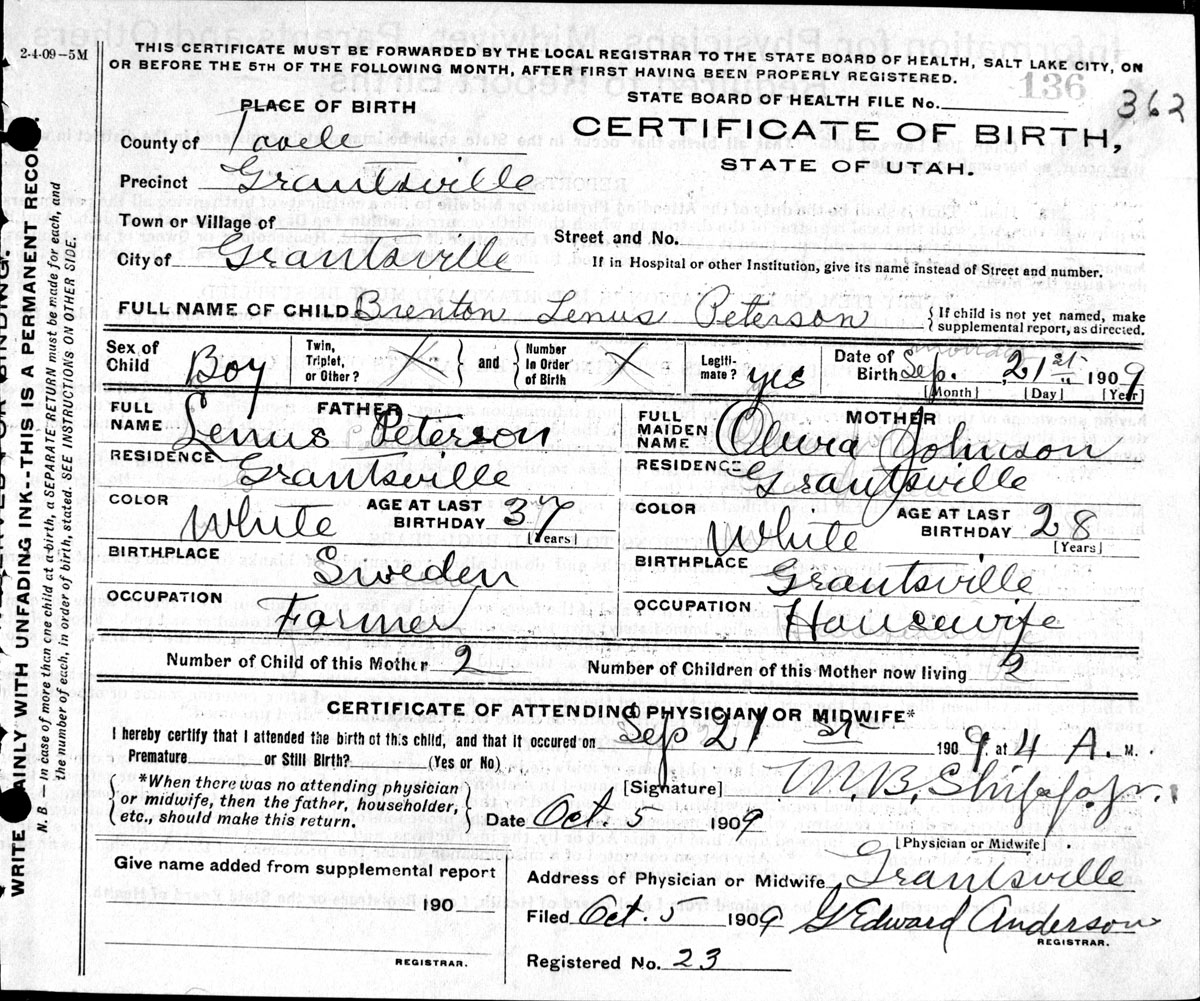 2-4-09-5M
THIS CERTIFICATE MUST BE FORWARDED BY THE LOCAL REGISTRAR TO THE STATE BOARD OF HEALTH, SALT LAKE CITY, ON
OR BEFORE THE 5TH OF THE FOLLOWING MONTH, AFTER FIRST HAVING BEEN PROPERLY REGISTERED.
136
PLACE OF BIRTH
STATE BOARD OF HEALTH FILE No. 362
County of Tooele
CERTIFICATE OF BIRTH,
STATE OF UTAH.
Precinct Grantsville
Town or Village of
Street and No.
City of Grantsville
If in Hospital or other Institution, give its name instead of Street and number.
FULL NAME OF CHILD Brenton Lenus Peterson { If child is not yet named, make supplemental report, as directed.
Sex of Child Boy Twin, Triplet, or Other? X } and { Number In Order of Birth X Legitimate? yes Date of Birth Sep. 21st 1909
[Month] [Day] [Year]
FATHER
FULL NAME Lenus Peterson
RESIDENCE Grantsville
COLOR White AGE AT LAST BIRTHDAY 37 [Years]
BIRTHPLACE Sweden
OCCUPATION Farmer
MOTHER
FULL MAIDEN NAME Johnson
RESIDENCE Grantsville
COLOR White AGE AT LAST BIRTHDAY 28 [Years]
BIRTHPLACE Grantsville
OCCUPATION Housewife
Number of Child of this Mother 2 Number of Children of this Mother now living 2
CERTIFICATE OF ATTENDING PHYSICIAN OR MIDWIFE*
I hereby certify that I attended the birth of this child, and that it occured on Sep 21st 1909 at 4 A. M.
Premature or Still Birth? (Yes or No)
{ *When there was no attending physician
or midwife, then the father, householder,
etc., should make this return. }
[Signature]
Date Oct 5 1909
[Physician or Midwife]
Give name added from supplemental report
190
REGISTRAR.
Address of Physician or Midwife Grantsville
Filed Oct. 5 1909 G Edward Anderson
REGISTRAR.
Registered No. 23
AINLY WITH UNFADING INK--THIS IS A PERMANENT RECO
WRITE
N. B.—In case of more than one child at a birth, a SEPARATE RETURN must be made for each, and
the number of each, in order of birth, stated. SEE INSTRUCTIONS ON OTHER SIDE.